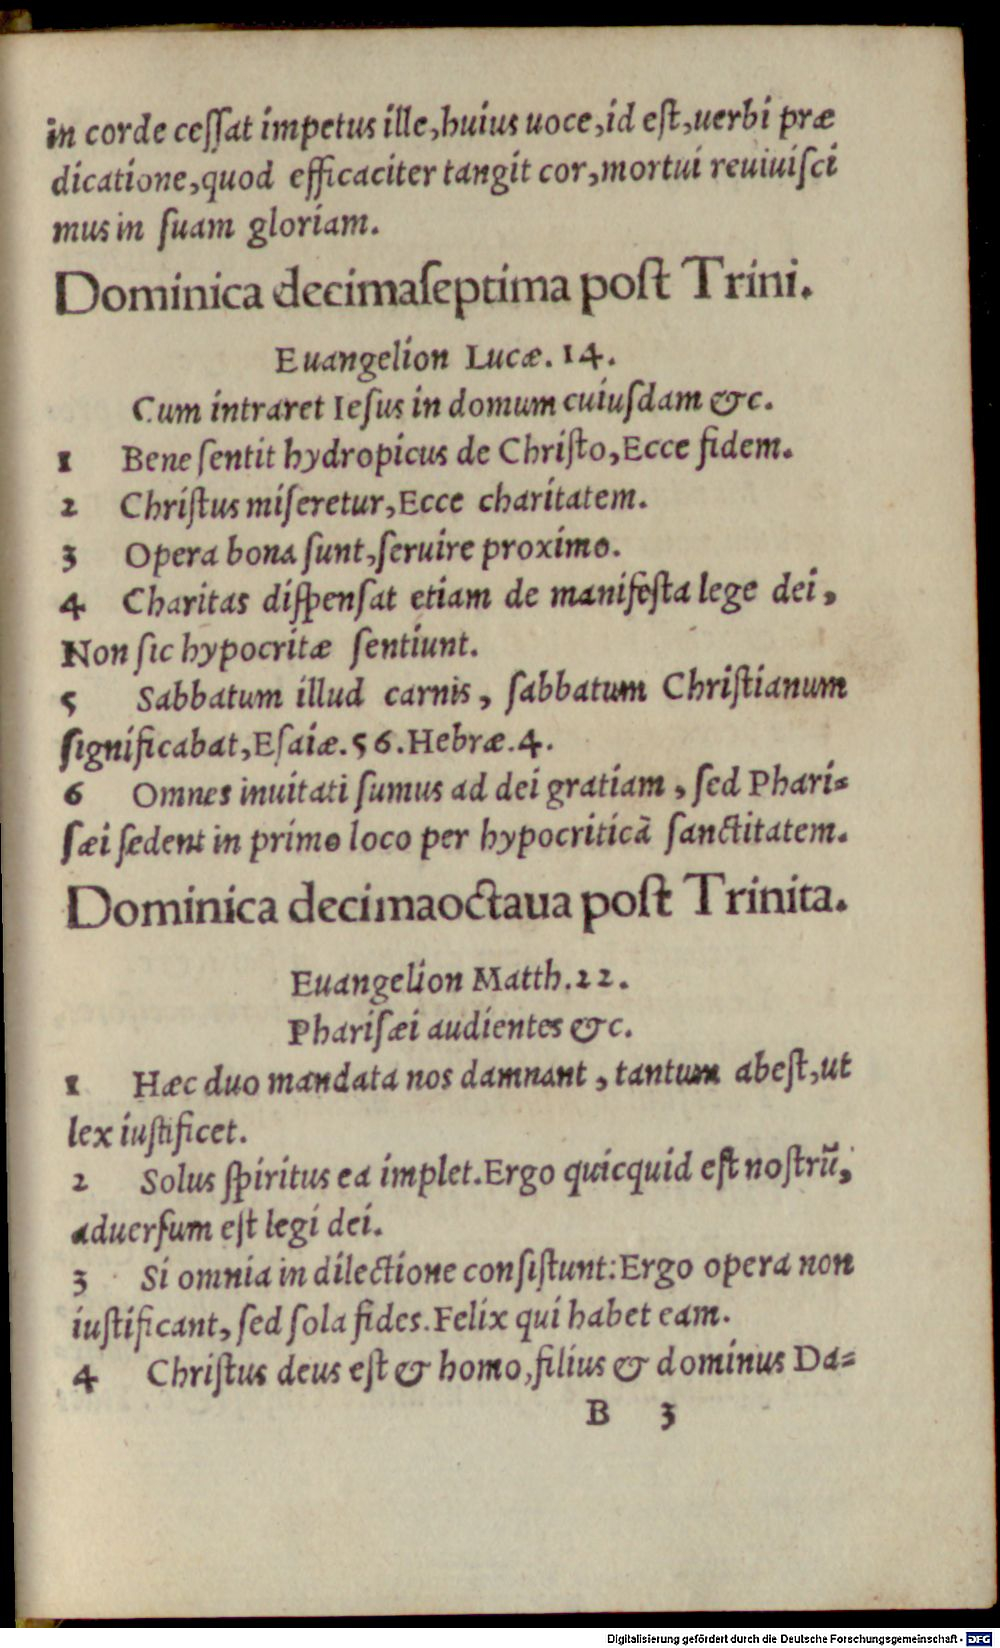 in corde ceſſat impetus ille,huius uoce,id eſt,uerbi præ
dicatione,quod efficaciter tangit cor,mortui reuiuiſci
mus in ſuam gloriam.
Dominica decimaſeptima poſt Trini.
Euangelion Lucæ. 14.
Cum intraret Ieſus in domum cuiuſdam &c.
1 Bene ſentit hydropicus de Chriſto,Ecce fidem.
2 Chriſtus miſeretur,Ecce charitatem.
3 Opera bona ſunt,ſeruire proximo.
4 Charitas diſpenſat etiam de manifeſta lege dei,
Non ſic hypocritæ ſentiunt.
5 Sabbatum illud carnis, ſabbatum Chriſtianum
ſignificabat,Eſaiæ.56.Hebræ.4.
6 Omnes inuitati ſumus ad dei gratiam, ſed Phari-
ſæi ſedent in primo loco per hypocriticã ſanctitatem.
Dominica decimaoctaua poſt Trinita.
Euangelion Matth.22.
Phariſæi audientes &c.
1 Hæc duo mandata nos damnant, tantum abeſt,ut
lex iuſtificet.
2 Solus ſpiritus ea implet.Ergo quicquid eſt noſtrũ,
aduerſum eſt legi dei.
3 Si omnia in dilectione conſiſtunt:Ergo opera non
iuſtificant, ſed ſola fides.Felix qui habet eam.
4 Chriſtus deus eſt & homo,filius & dominus Da-
B 3
Digitalisierung gefördert durch die Deutsche Forschungsgemeinschaft - DFG